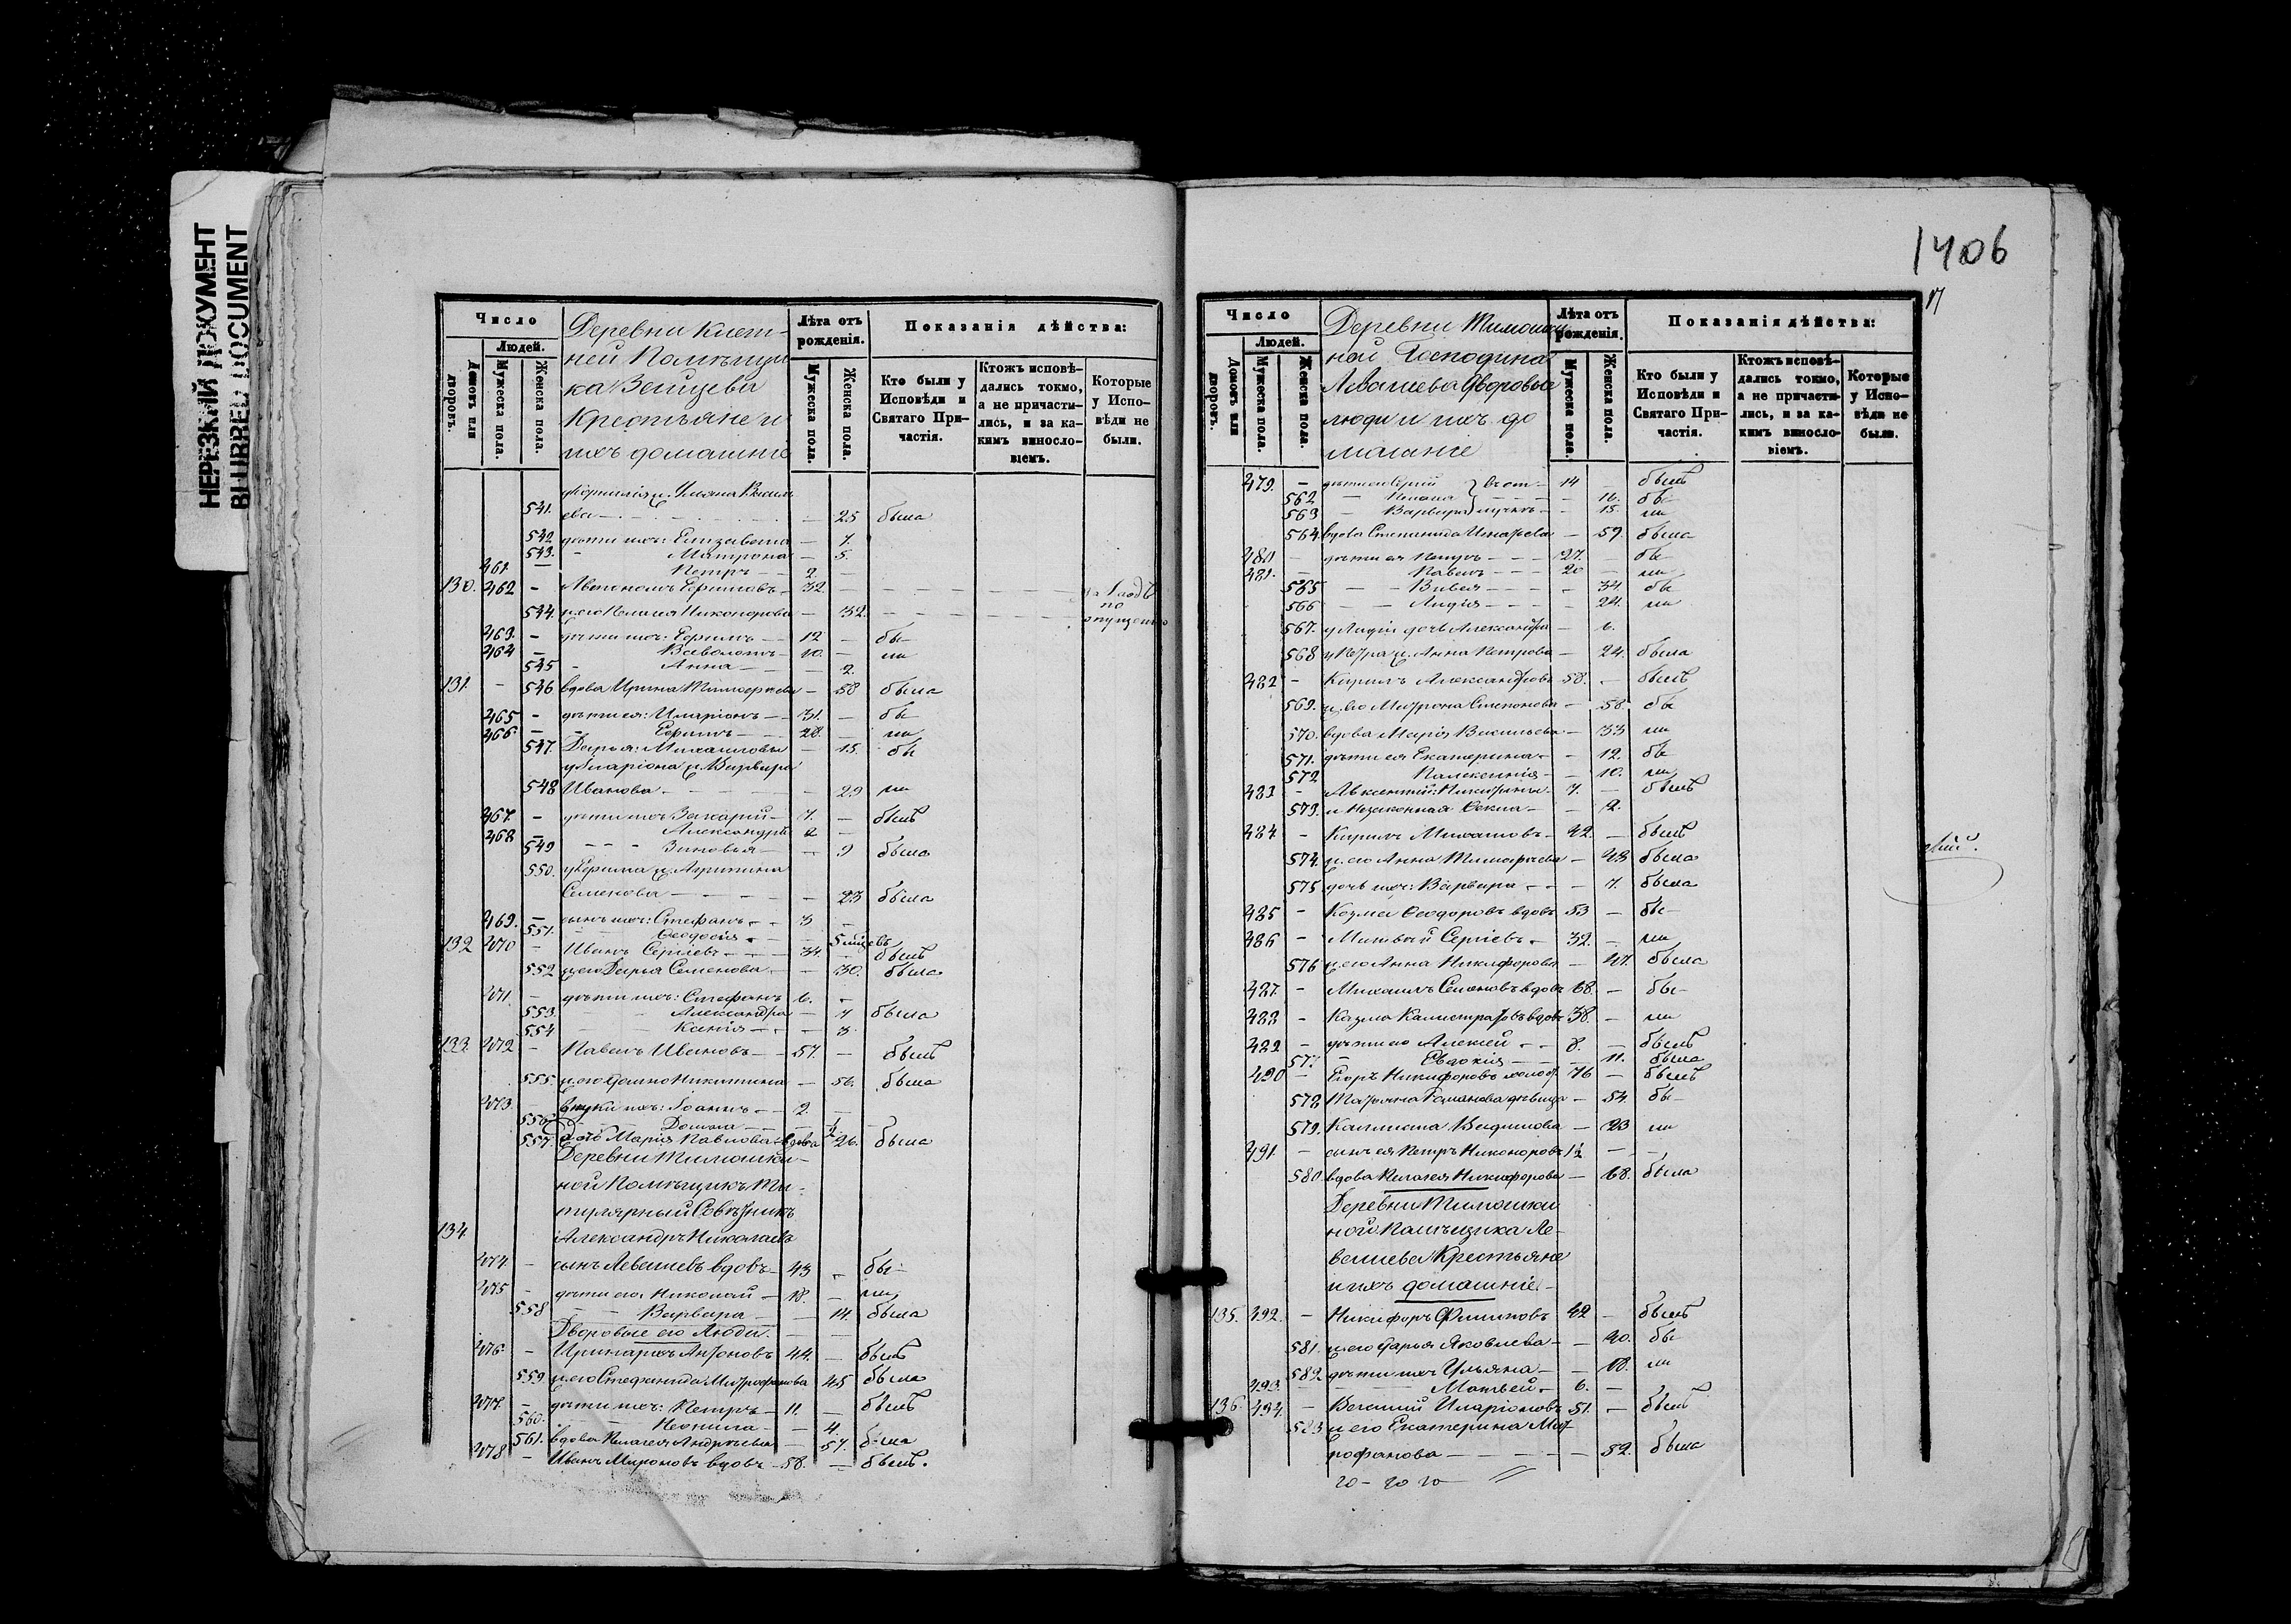 НЕРЕЗКИЙ ДОКУМЕНТ
BLURRED DOCUMENT
Число
Людей.
Домовъ или дворовъ.
Мужеска пола.
Женска пола.
Деревни Клет-
ней Помѣщи
ка Вейцева
Крестьяне и
ихъ домашніе
Лѣта отъ рожденія.
Мужеска пола.
Женска пола.
Показанія дѣйства:
Кто были у Исповѣди и Святаго Причастія.
Ктожъ исповѣ-
дались токмо,
а не причасти-
лись, и за ка-
кимъ виносло-
віемъ.
Которые
у Испо-
вѣди не
были.
ж. Ульяна Василь
541. ева — 25 была
542 дѣти ихъ: Елизавета — 7.
543. - Матрона — 5.
461. — Петръ — 2. —
130. 462 - Ефимовъ — 32. — по опущенію
544. ж. его Пелагія Никонорова — 32.
463. - дѣти ихъ: Ефимъ — 12 — бы-
464 — — 10. — ли
545 - Анна — 2.
131. - 546 вдова Ирина Тимофеева — 58 была
465 - дѣти ея: Иларіонъ — 31. — бы-
466. — Ефимъ — 28. — ли
547. Дарья: Михайлова — 15. бы
у Иларіона ж. Варвара
548 Иванова — 29 ли
467. - дѣти ихъ Захарій — 7. — былъ
468 — Александръ 2 —
549 - - - Зиновья — 9 была
550. у Ефима ж. Агрипина
Семенова — 23 была
469. — сынъ ихъ: Стефанъ — 3 —
551. Ѳеодосія — 5 мѣсецевъ
132 470 - Иванъ Сергіевъ — 34. — былъ
552 ж. его Дарья Семенова — 30. была
471. - дѣти ихъ: Стефанъ 6. -
553. - - Александра — 7 была
554 - - Ксенія — 3.
133. 472 - Павелъ Ивановъ — 57. — былъ
555. ж. его Домна Никитина — 56. была
473. - внуки ихъ: Іоаннъ — 2. —
556 Домна —
557. Дочь Марія Павлова вдова 26. была
Деревни Тимошки-
ной Помѣщикъ Ти-
тулярный Совѣтникъ
134 Александръ Николаевъ
474. - сынъ Левашевъ вдовъ — 43 — бы-
475 - дѣти его Николай — 18. — ли
558 - - Варвара — 14. была
Дворовые его Люди. —
476. - Иринархъ Антоновъ 44. — былъ
559. ж. его Стефанида Митрофанова 45 была
477. - дѣти ихъ: Петръ — 11. — былъ
560. - Неонила — 4.
561. вдова Пелагея Андреева — 57. была
478 - Иванъ Мироновъ вдовъ — 58. — былъ.
1406
17
Число
Людей.
Домовъ или дворовъ.
Мужеска пола.
Женска пола.
Деревни Тимошки
ной Господина
Левашева Дворовые
люди и ихъ до
машніе
Лѣта отъ рожденія.
Мужеска пола.
Женска пола.
Показанія дѣйства:
Кто были у Исповѣди и Святаго Причастія.
Ктожъ исповѣ-
дались токмо,
а не причасти-
лись, и за ка-
кимъ виносло-
віемъ.
Которые
у Испо-
вѣди не
были.
479. — дѣти его Сергій — 14 — былъ
562 — — 16. бы-
563 — Варвара — 15. ли
564. вдова Степанида Игнатьева — 59. была
480 — дѣти ея Петръ — 27. — бы-
481. - Павелъ — 20 — ли
565 — — 34. бы
566 — Лидія — 24. ли
567. у Лидіи дочь Александра — 6.
568 у Петра ж. Анна Петрова — 24. была
482 - Кирилъ Александровъ 58. — былъ
569. ж. его Матрона Степанова — 58. бы
570. вдова Марія Васильева — 33 ли
571. дѣти ея Екатерина — 12. бы
572 — 10. ли
483 - Авксентій — 7. — былъ
573. и Незаконная Ѳекла — 2.
484. - Кирилъ Михайловъ — 42. — былъ
574. ж. его Анна Тимофеева — 48 была
575 дочь ихъ: Варвара — 7. была
485 - Козма Ѳеодоровъ вдовъ 53 — бы-
486 - Матвѣй Сергіевъ — 32. — ли
576 ж. его Анна Никифорова — 47. была
487. - Михаилъ Семеновъ вдовъ 68. — бы-
488 - Казма Калистратовъ вдовъ 38. — ли
489 - дѣти его Алексей — 8. — былъ
577 - Евдокія — 11. была
490 — Егоръ Никифоровъ холост. 76 — былъ
578 Татьяна Романова дѣвица — 54 бы-
579. Капитана Вадимова — 23 ли
491. - сынъ ея Петръ Никоноровъ 1½ —
580. вдова Пелагея Никифорова — 68. была
Деревни Тимошки
ной Помѣщика Ле-
вашева Крестьяне
и ихъ домашніе —
135. 492. - Никифоръ Филиповъ 42 — былъ
581. ж. его Дарья Яковлева — 40. бы-
582 дѣти ихъ Ульяна — 18. ли
493. — Матвей — 6. —
136. 494. - Иларіоновъ 51. — былъ
583 ж. его Екатерина Мит
рофанова — 52. была